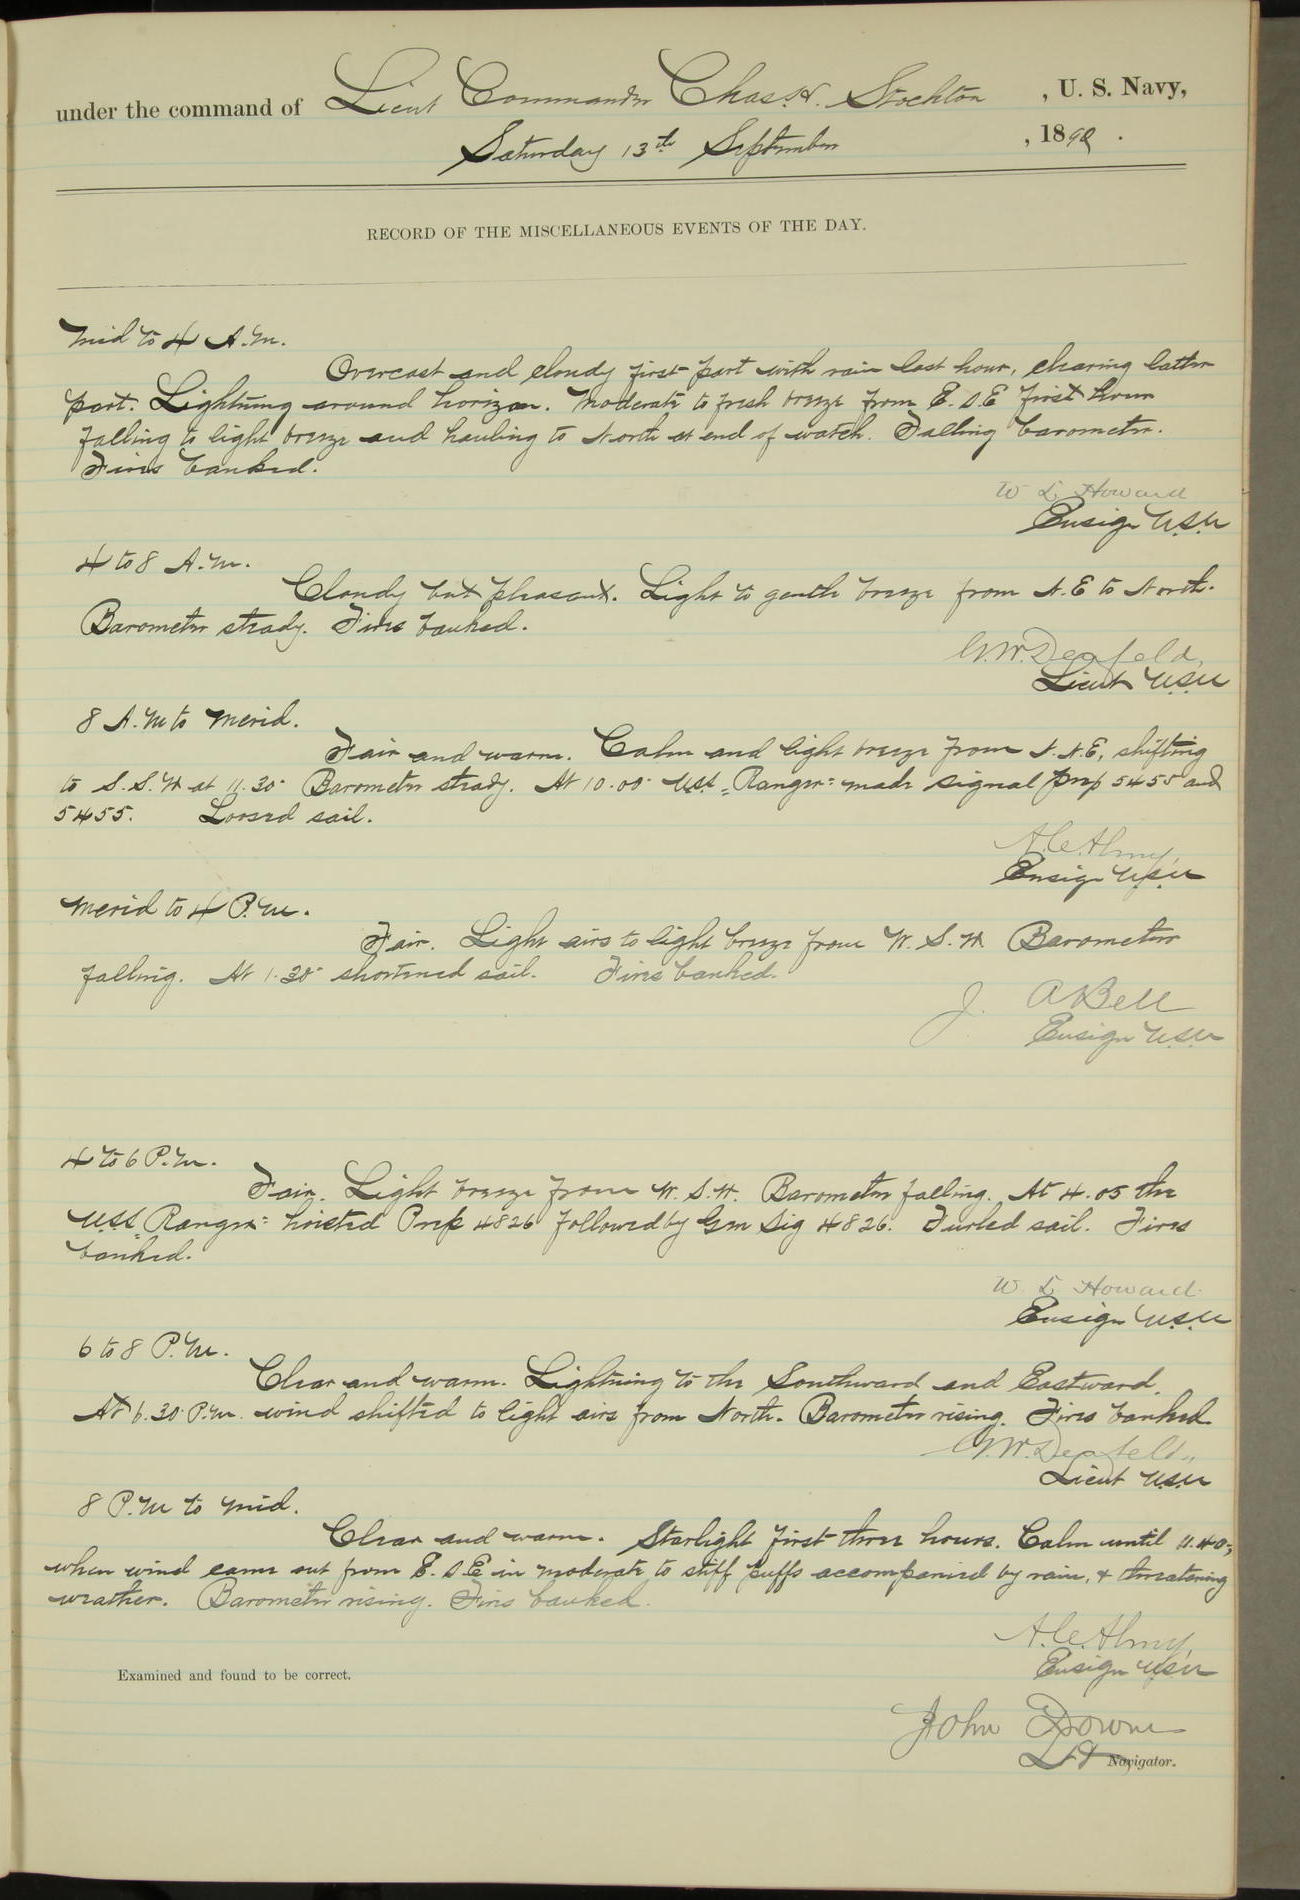 under the command of Lieut Commander Chas. H. Stockton , U. S. Navy,
Saturday 13th September , 1890 .
RECORD OF THE MISCELLANEOUS EVENTS OF THE DAY.
Mid to 4 A.M.
Overcast and cloudy first part with rain last hour, clearing latter
part. Lightning around horizon. Moderate to fresh breeze from E.S.E first hour
falling to light breeze and hauling to North at end of watch. Falling barometer.
Fires banked.
W L Howard
Ensign U.S.N
4 to 8 A.M.
Cloudy but pleasant. Light to gentle breeze from N.E to North.
Barometer steady. Fires banked.
G.W. Denfeld,
Lieut U.S.N
8 A.M to Merid.
Fair and warm. Calm and light breeze from N.N.E, shifting
to S.S.W at 11.30 Barometer steady. At 10.00 U.S.S. "Ranger" made signal prep 5455 and
5455. Loosed sail.
A.C. Almy,
Ensign U.S.N
Merid to 4 P.M.
Fair. Light airs to light breeze from W.S.W Barometer
falling. At 1.30 shortened sail. Fires banked.
J. A Bell
Ensign U.S.N
4 to 6 P.M.
Fair. Light breeze from W.S.W. Barometer falling. At 4.05 the
U.S.S. "Ranger" hoisted Prep 4826 followed by Gen Sig 4826. Furled sail. Fires
banked.
W L Howard.
Ensign U.S.N
6 to 8 P.M.
Clear and warm. Lightning to the Southward and Eastward.
At 6.30 P.M. wind shifted to light airs from North. Barometer rising. Fires banked
G.W. Denfeld,
Lieut U.S.N
8 P.M to Mid.
Clear and warm. Starlight first three hours. Calm until 11.40,
when wind came out from E.S.E in moderate to stiff puffs accompanied by rain, & threatening
weather. Barometer rising. Fires banked.
A.C. Almy,
Ensign U.S.N
Examined and found to be correct.
John Downes
Lt Navigator.